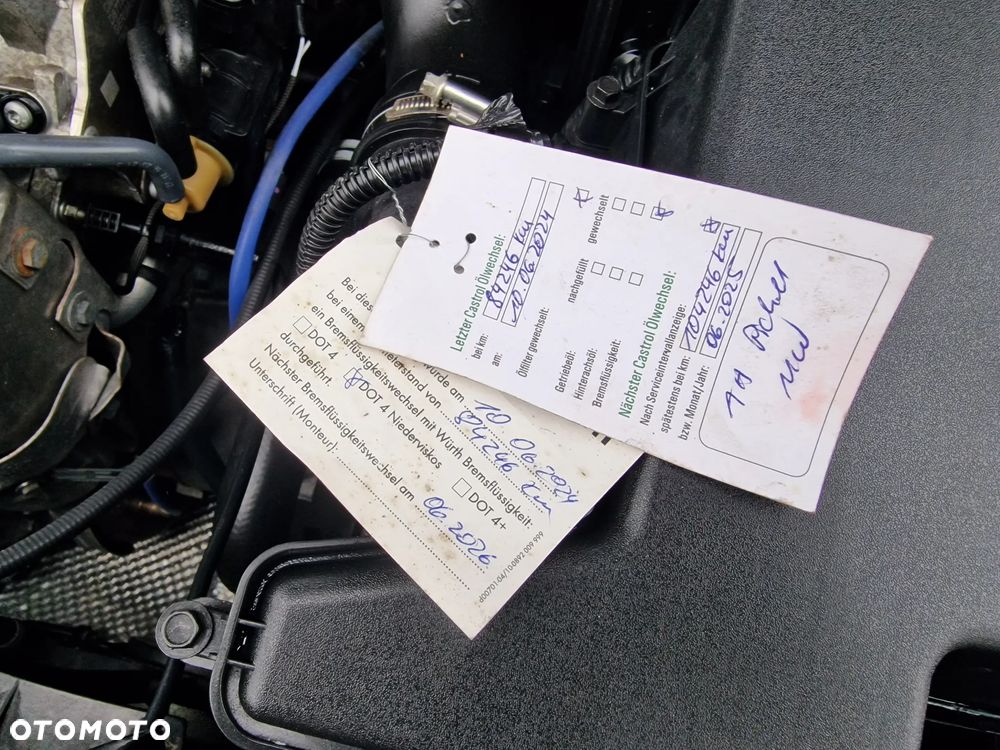 Letzter Castrol Ölwechsel:
bei km: 84246 km
am: 10.06.2024
Ölfilter gewechselt:
nachgefüllt gewechselt
Getriebeöl:
Hinterachsöl:
Bremsflüssigkeit:
Nächster Castrol Ölwechsel:
Nach Serviceintervallanzeige:
spätestens bei km: 104246 km
bzw. Monat/Jahr: 06.2025
Bei diese
bei einem Kilometerstand von 84246 km
wurde am 10 06 2024
ein Bremsflüssigkeitswechsel mit Würth Bremsflüssigkeit:
DOT 4 DOT 4 Niederviskos DOT 4+
durchgeführt.
Nächster Bremsflüssigkeitswechsel am 06.2026
Unterschrift (Monteur):
d00701-04/10-0892 009 999
OTOMOTO